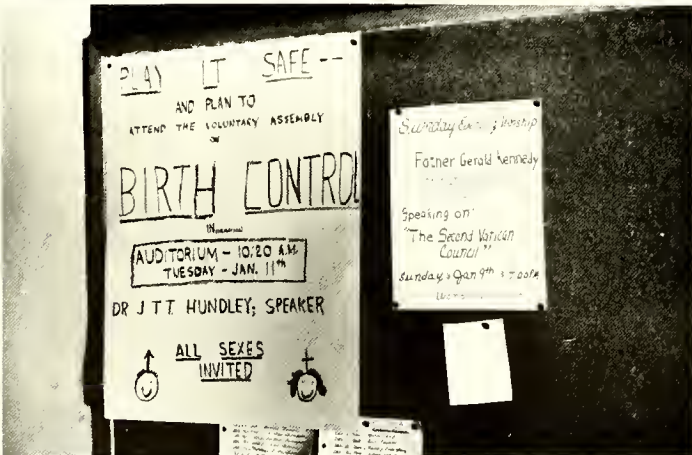 PLAY IT SAFE --
AND PLAN TO
ATTEND THE VOLUNTARY ASSEMBLY
ON
BIRTH CONTROL
IN
AUDITORIUM - 10:20 A.M.
TUESDAY - JAN. 11th
DR J T T HUNDLEY; SPEAKER
ALL SEXES
INVITED
Sunday Worship
Father Gerald Kennedy
Speaking on:
"The Second Vatican
Council"
Sunday, Jan 9th